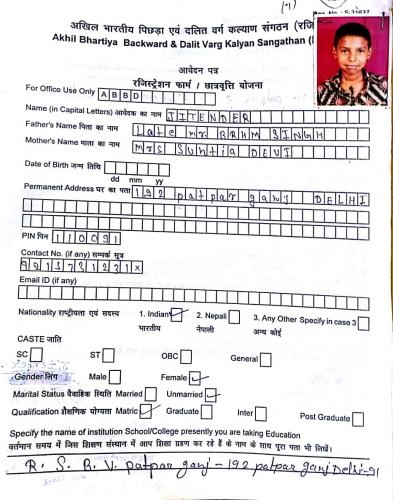 अखिल भारतीय पिछड़ा एवं दलित वर्ग कल्याण संगठन (रजि
Akhil Bhartiya Backward & Dalit Varg Kalyan Sangathan (
आवेदन पत्र
रजिस्ट्रेशन फार्म / छात्रवृत्ति योजना
For Office Use Only A B B D
Name (in Capital Letters) आवेदक का नाम JITENDER
Father's Name पिता का नाम Late mr BRHM SINGH
Mother's Name माता का नाम Mrs Suntia DEVI
Date of Birth जन्म तिथि
dd mm yy
Permanent Address घर का पता 192 patpar ganj DELHI
PIN पिन 110091
Contact No. (if any) सम्पर्क सूत्र
Email ID (if any)
Nationality राष्ट्रीयता एवं सदस्य 1. Indian 2. Nepali 3. Any Other Specify in case 3
भारतीय नेपाली अन्य कोई
CASTE जाति
SC ST OBC General
Gender लिंग Male Female
Marital Status वैवाहिक स्थिति Married Unmarried
Qualification शैक्षणिक योग्यता Matric Graduate Inter Post Graduate
Specify the name of institution School/College presently you are taking Education
वर्तमान समय में जिस शिक्षण संस्थान में आप शिक्षा ग्रहण कर रहे हैं के नाम के साथ पूरा पता भी लिखें।
R. S. B. V. patpar ganj - 192 patpar ganj Delhi-91